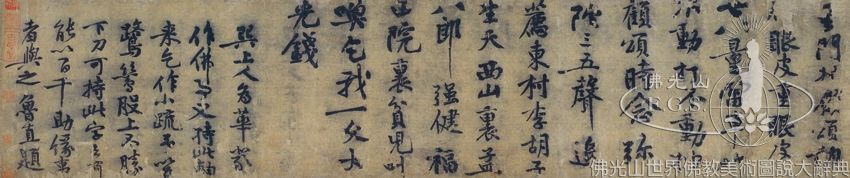 眼皮重眼皮
動打不動
顧頌時念彌
陀三五聲追
薦東村李胡子
生天西山裏孟
八郎強健福
田院裏貧兒叫
喚乞我一文大
光錢
巽上人為華嚴
作佛事又持此軸
來乞作小疏不
鷺鷥股上不勝
下刀可持此字
能以百千助緣事
者與之魯直題
佛光山
F.G.S.
佛光山世界佛教美術圖說大辭典